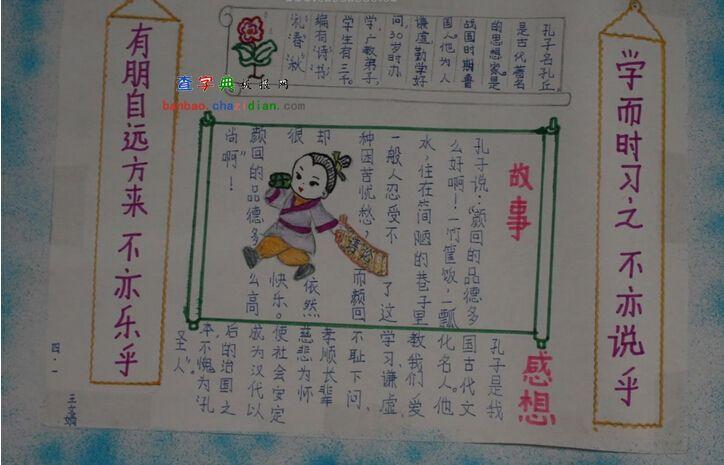 学而时习之 不亦说乎
孔子名孔丘
是古代著名
的思想家是
战国时期鲁
国人。他为人
谦虚,勤学好
问,30岁时办
学,广教弟子,
学生有三千。
编有"诗""书"
"礼""春秋"
查字典 板报网
banbao.chazidian.com
故事
孔子说:"颜回的品德多
么好啊!一竹筐饭,一瓢
水,住在简陋的巷子里
一般人忍受不了这
种困苦忧愁,而颜回
却依然
很快乐。
颜回的品德多么高
尚啊"!
论语
感想
孔子是我
国古代文
化名人。他
教我们爱
学习、谦虚
不耻下问、
孝顺长辈
慈悲为怀
使社会安定
成为汉代以
后的治国之
本不愧为孔
圣人"。
有朋自远方来 不亦乐乎
四.一